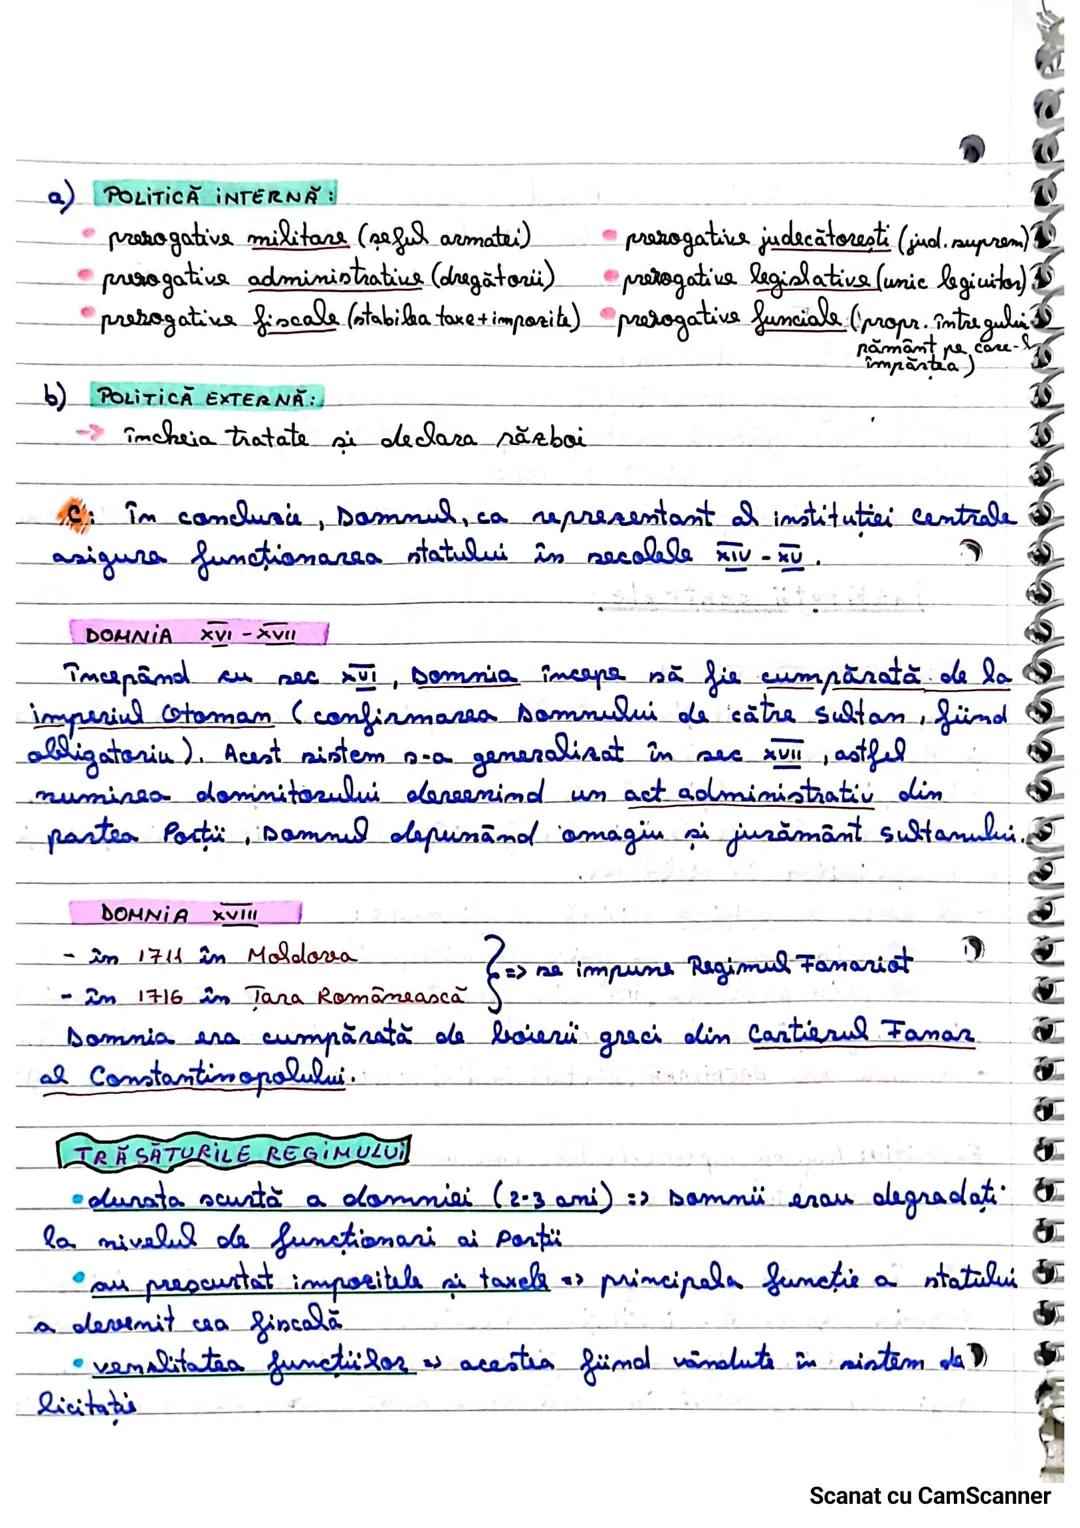 a) POLITICĂ INTERNĂ:
• prerogative militare (șeful armatei)
• prerogative judecătorești (jud. suprem)
• prerogative administrative (dregătorii)
• prerogative legislative (unic legiuitor)
• prerogative fiscale (stabilea taxe+impozite)
• prerogative funciale (propr. întregului
pământ pe care-l
împărțea)
b) POLITICĂ EXTERNĂ:
→ încheia tratate și declara război
C: În concluzie, Domnul, ca reprezentant al instituției centrale
asigura funcționarea statului în secolele XIV - XV.
DOMNIA XVI - XVII
Începând cu sec XVI, Domnia începe să fie cumpărată de la
imperiul Otoman (confirmarea Domnului de către Sultan, fiind
obligatoriu). Acest sistem s-a generalizat în sec XVII, astfel
numirea domnitorului devenind un act administrativ din
partea Porții, Domnul depunând omagiu și jurământ sultanului.
DOMNIA XVIII
- în 1711 în Moldova
- în 1716 în Țara Românească
=> se impune Regimul Fanariot
Domnia era cumpărată de boierii greci din Cartierul Fanar
al Constantinopolului.
TRĂSĂTURILE REGIMULUI
• durata scurtă a domniei (2-3 ani) => Domnii erau degradați
la nivelul de funcționari ai Porții
• au prescurtat impozitele și taxele => principala funcție a statului
a devenit cea fiscală
• venalitatea funcțiilor => acestea fiind vândute în sistem de
licitație
Scanat cu CamScanner